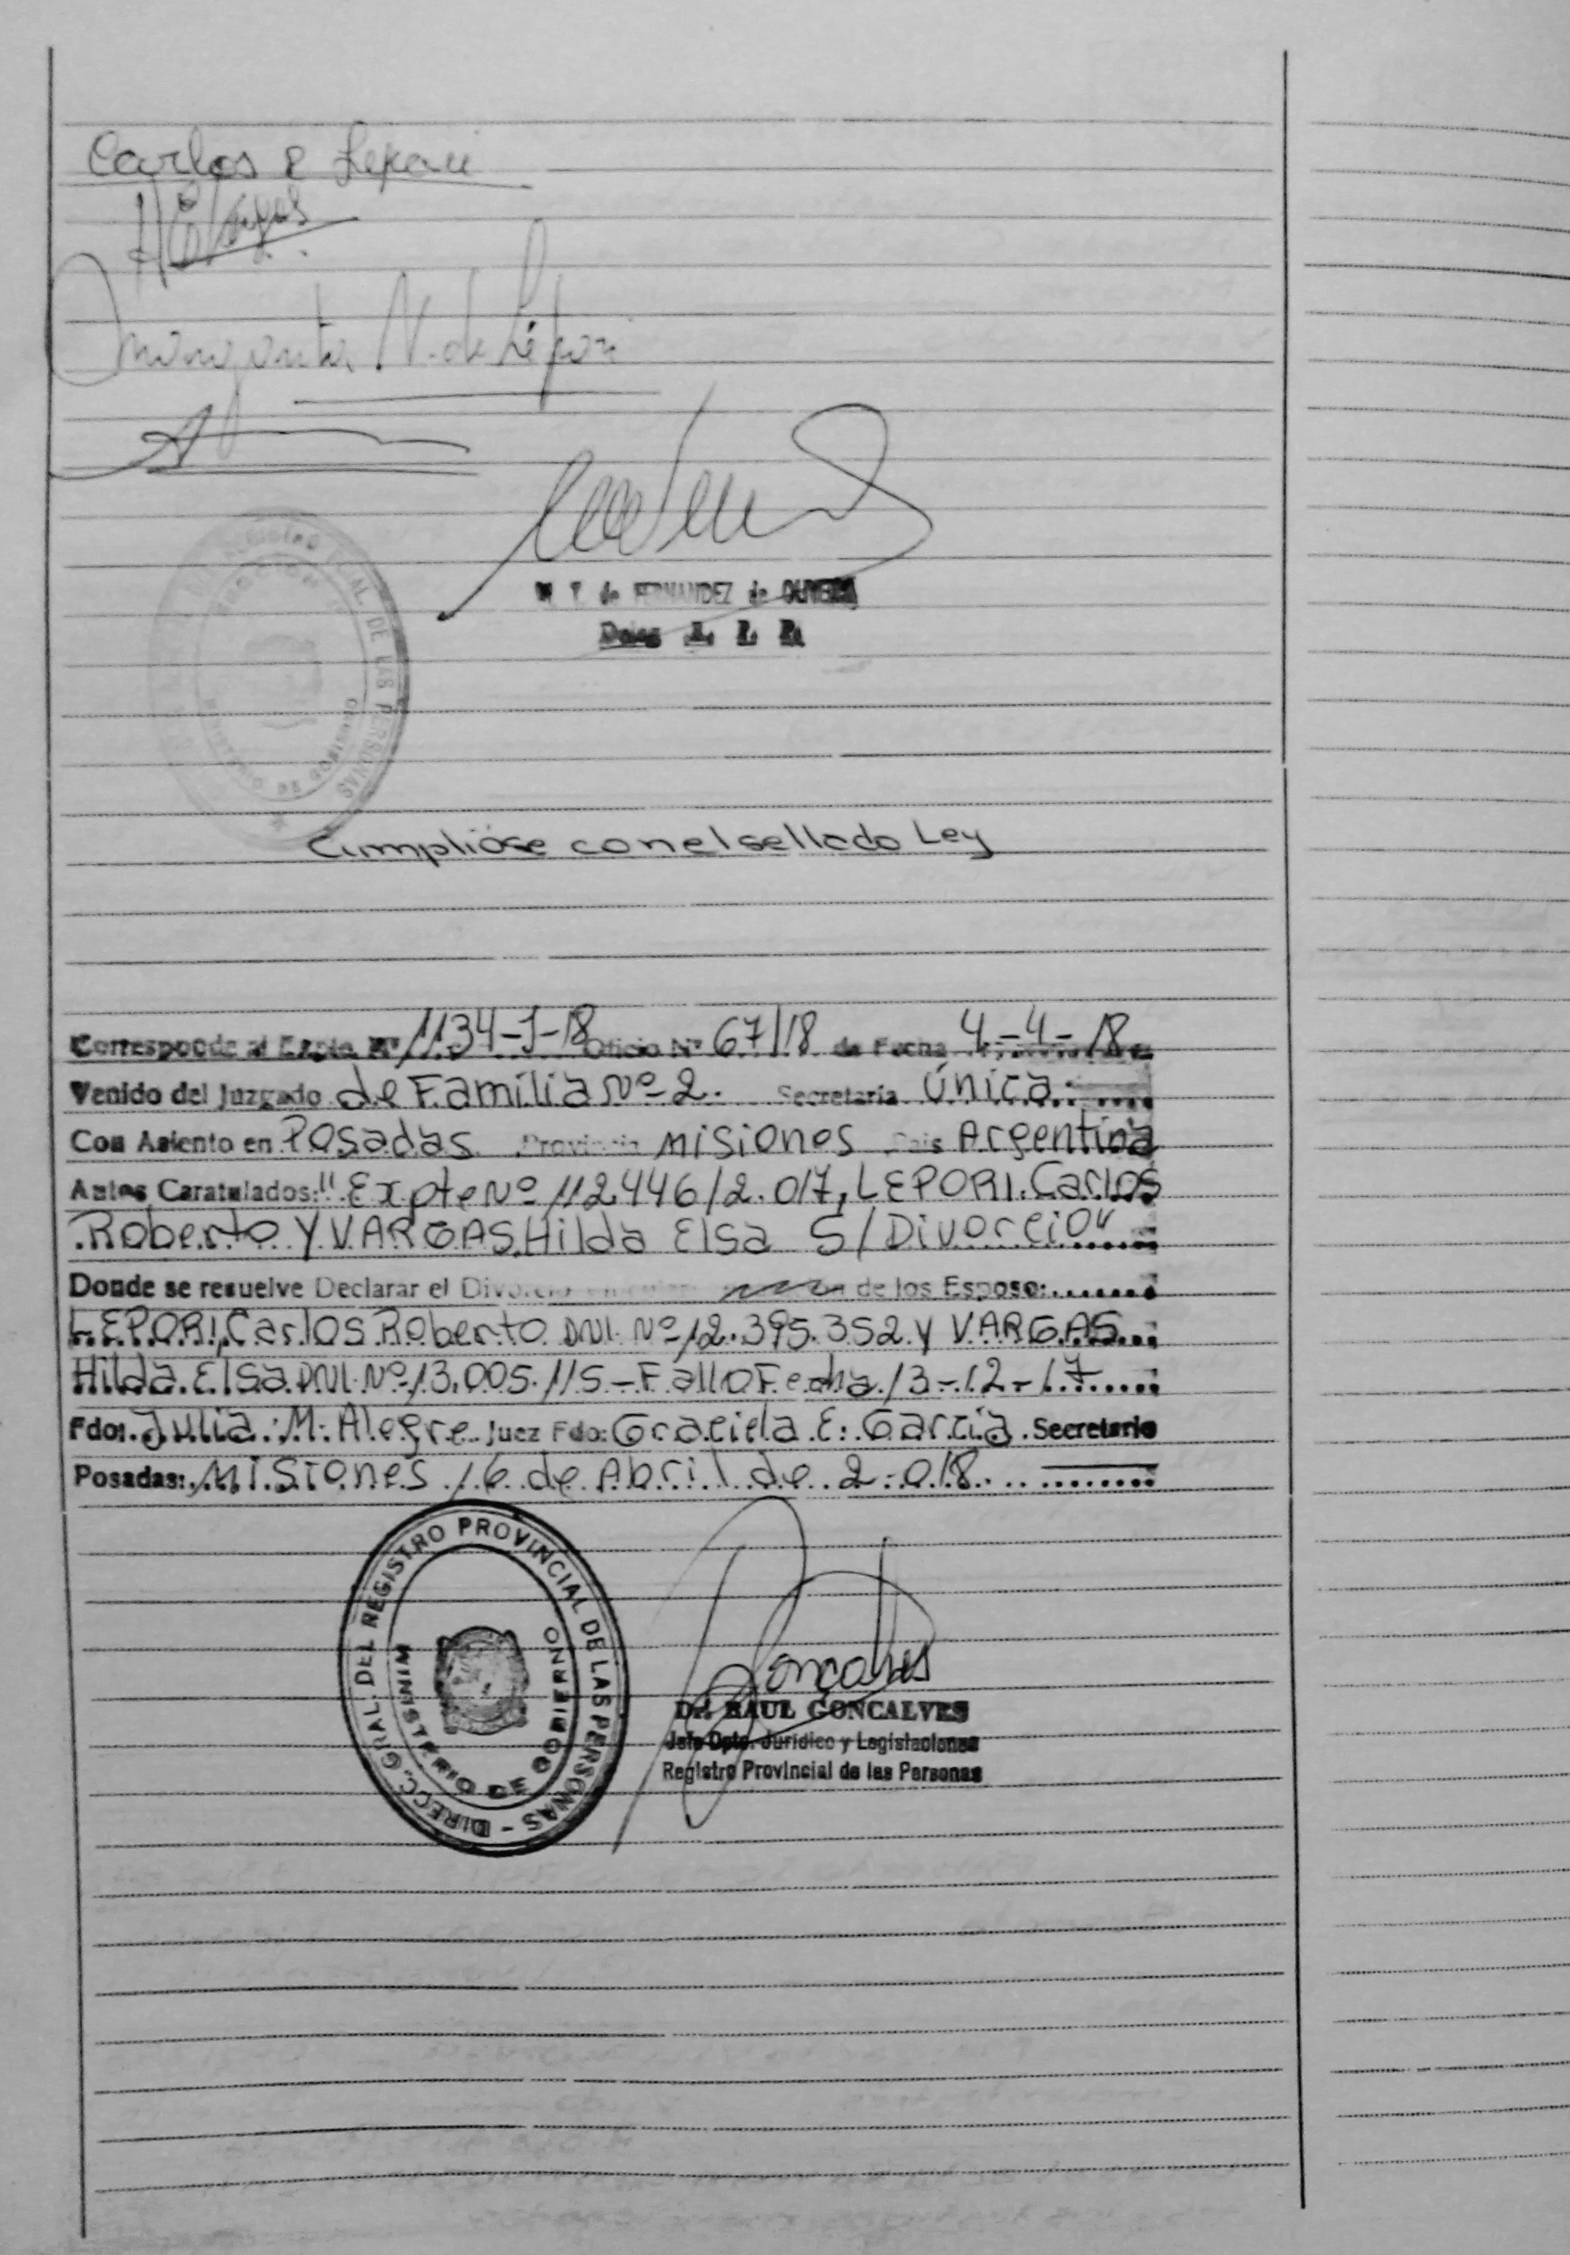 Carlos R Lepori
H E Vargas
N. de Lépori
M T de FERNANDEZ de OLIVEIRA
Deleg. R. P. P.
GRAL. DE LAS PERSONAS
Cumplióse con el sellado Ley
Corresponde al Expte Nº 1134-J-18 Oficio Nº 67/18 de Fecha 4-4-18
Venido del Juzgado de Familia Nº 2. Secretaria Única
Con Asiento en Posadas Provincia Misiones Pais Argentina
Autos Caratulados: "Expte Nº 112446/2.017, LEPORI Carlos
Roberto Y VARGAS Hilda Elsa S/Divorcio"
Donde se resuelve Declarar el Divorcio de los Esposo:
LEPORI, Carlos Roberto DNI. Nº 12.395.352 Y VARGAS
Hilda Elsa DNI. Nº 13.005.115 - Fallo Fecha 13-12-17
Fdo: Julia M. Alegre Juez Fdo: Graciela E. García Secretario
Posadas: Misiones 16 de Abril de 2.018
DIRECC. GRAL. DEL REGISTRO PROVINCIAL DE LAS PERSONAS -
MINISTERIO DE GOBIERNO
Goncalves
Dr. RAUL GONCALVES
Jefe Dpto. Jurídico y Legislaciones
Registro Provincial de las Personas